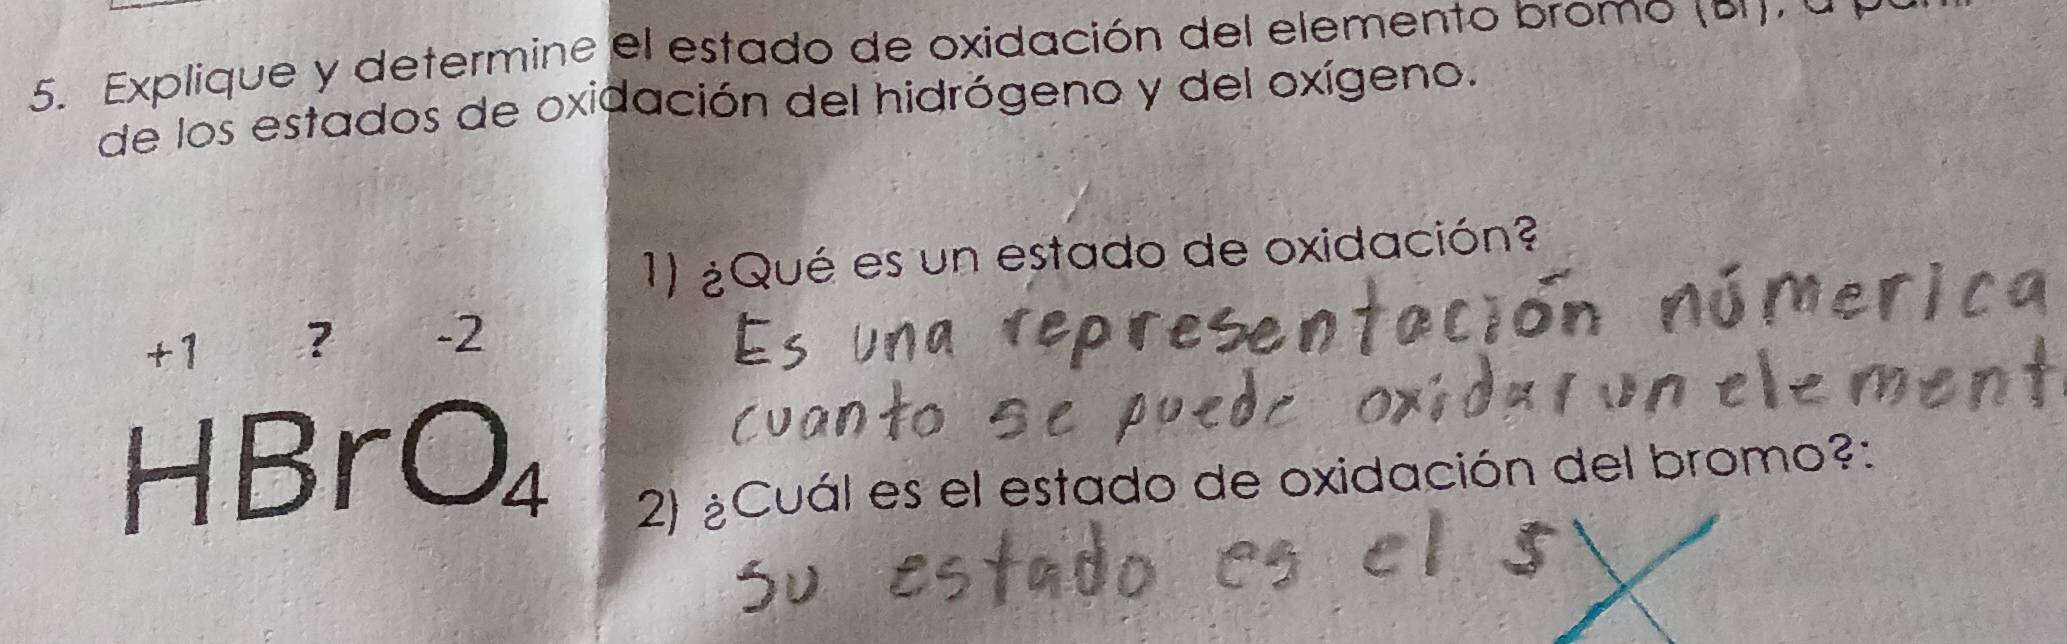 5. Explique y determine el estado de oxidación del elemento bromo (Br), a
de los estados de oxidación del hidrógeno y del oxígeno.
1) ¿Qué es un estado de oxidación?
Es una representación númerica
cuanto se puede oxidar un element
+1 ? -2
HBrO₄
2) ¿Cuál es el estado de oxidación del bromo?:
su estado es el 5